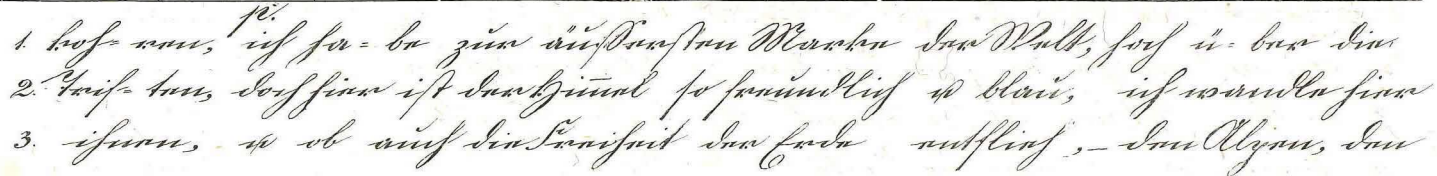 p.
1. koh- ren, ich ha- be zur äußersten Marke der Welt, hoch ü- ber die
2. Trif- ten, doch hier ist der Himmel so freundlich u blau, ich wandle hier
3. ihnen, u ob auch die Freiheit der Erde entflieh, – den Alpen, den